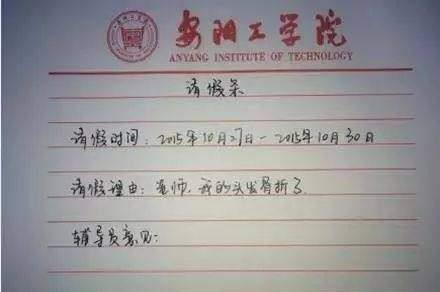 安阳工学院
ANYANG INSTITUTE OF TECHNOLOGY
请假条
请假时间：2015年10月27日-2015年10月30日
请假理由：老师，我的头发骨折了
辅导员意见：